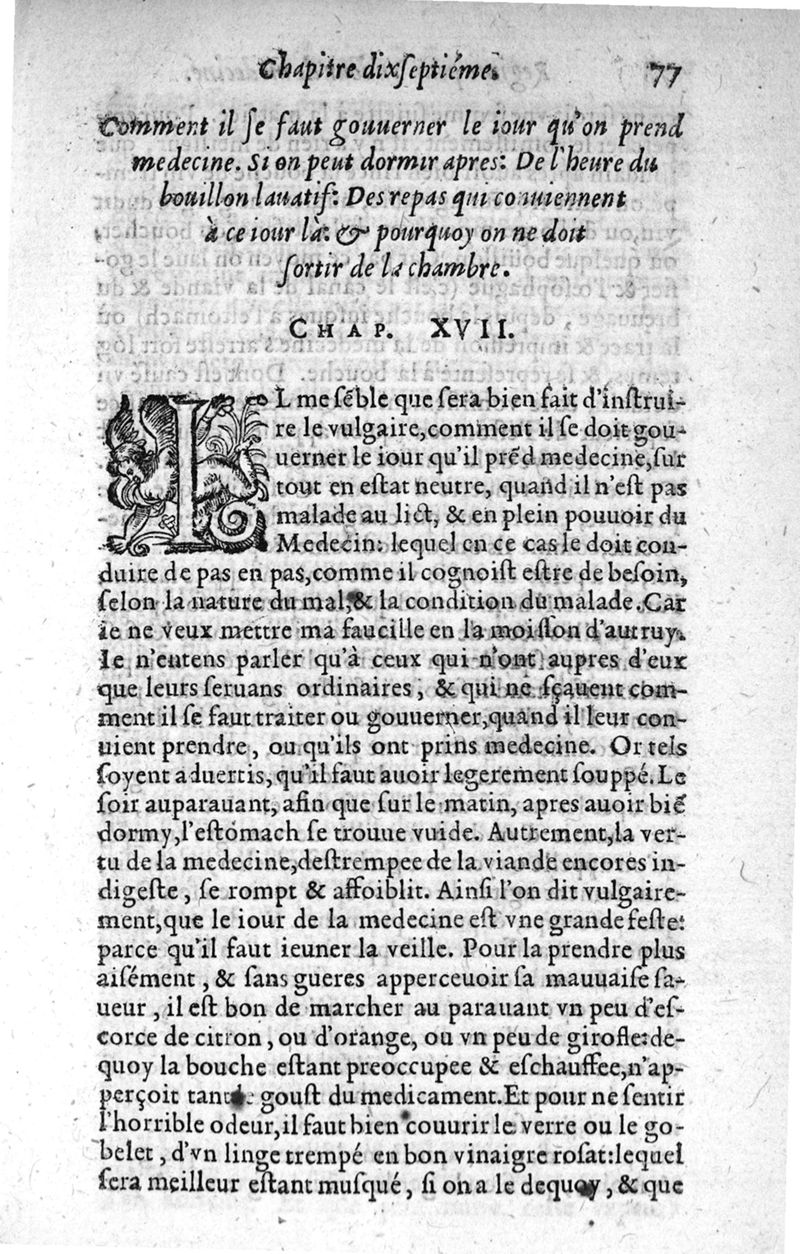 Chapitre dixſeptiéme. 77
Comment il ſe faut gouuerner le iour qu'on prend
medecine. Si on peut dormir apres: De l'heure du
bouillon lauatif: Des repas qui conuiennent
à ce iour là: & pourquoy on ne doit
ſortir de la chambre.
CHAP. XVII.
IL me sẽble que ſera bien fait d'inſtrui-
re le vulgaire, comment il ſe doit gou-
uerner le iour qu'il prẽd medecine, ſur
tout en eſtat neutre, quand il n'eſt pas
malade au lict, & en plein pouuoir du
Medecin: lequel en ce cas le doit con-
duire de pas en pas, comme il cognoiſt eſtre de beſoin,
ſelon la nature du mal, & la condition du malade. Car
ie ne veux mettre ma faucille en la moiſſon d'autruy.
Ie n'entens parler qu'à ceux qui n'ont aupres d'eux
que leurs ſeruans ordinaires, & qui ne ſçauent com-
ment il ſe faut traiter ou gouuerner, quand il leur con-
uient prendre, ou qu'ils ont prins medecine. Or tels
ſoyent aduertis, qu'il faut auoir legerement ſouppé. Le
ſoir auparauant, afin que ſur le matin, apres auoir biẽ
dormy, l'eſtomach ſe trouue vuide. Autrement, la ver-
tu de la medecine, deſtrempee de la viande encores in-
digeſte, ſe rompt & affoiblit. Ainſi l'on dit vulgaire-
ment, que le iour de la medecine eſt vne grande feſte:
parce qu'il faut ieuner la veille. Pour la prendre plus
aiſément, & ſans gueres apperceuoir ſa mauuaiſe ſa-
ueur, il eſt bon de marcher au parauant vn peu d'eſ-
corce de citron, ou d'orange, ou vn peu de girofle: de-
quoy la bouche eſtant preoccupee & eſchauffee, n'ap-
perçoit tant le gouſt du medicament. Et pour ne ſentir
l'horrible odeur, il faut bien couurir le verre ou le go-
belet, d'vn linge trempé en bon vinaigre roſat: lequel
ſera meilleur eſtant muſqué, ſi on a le dequoy, & que